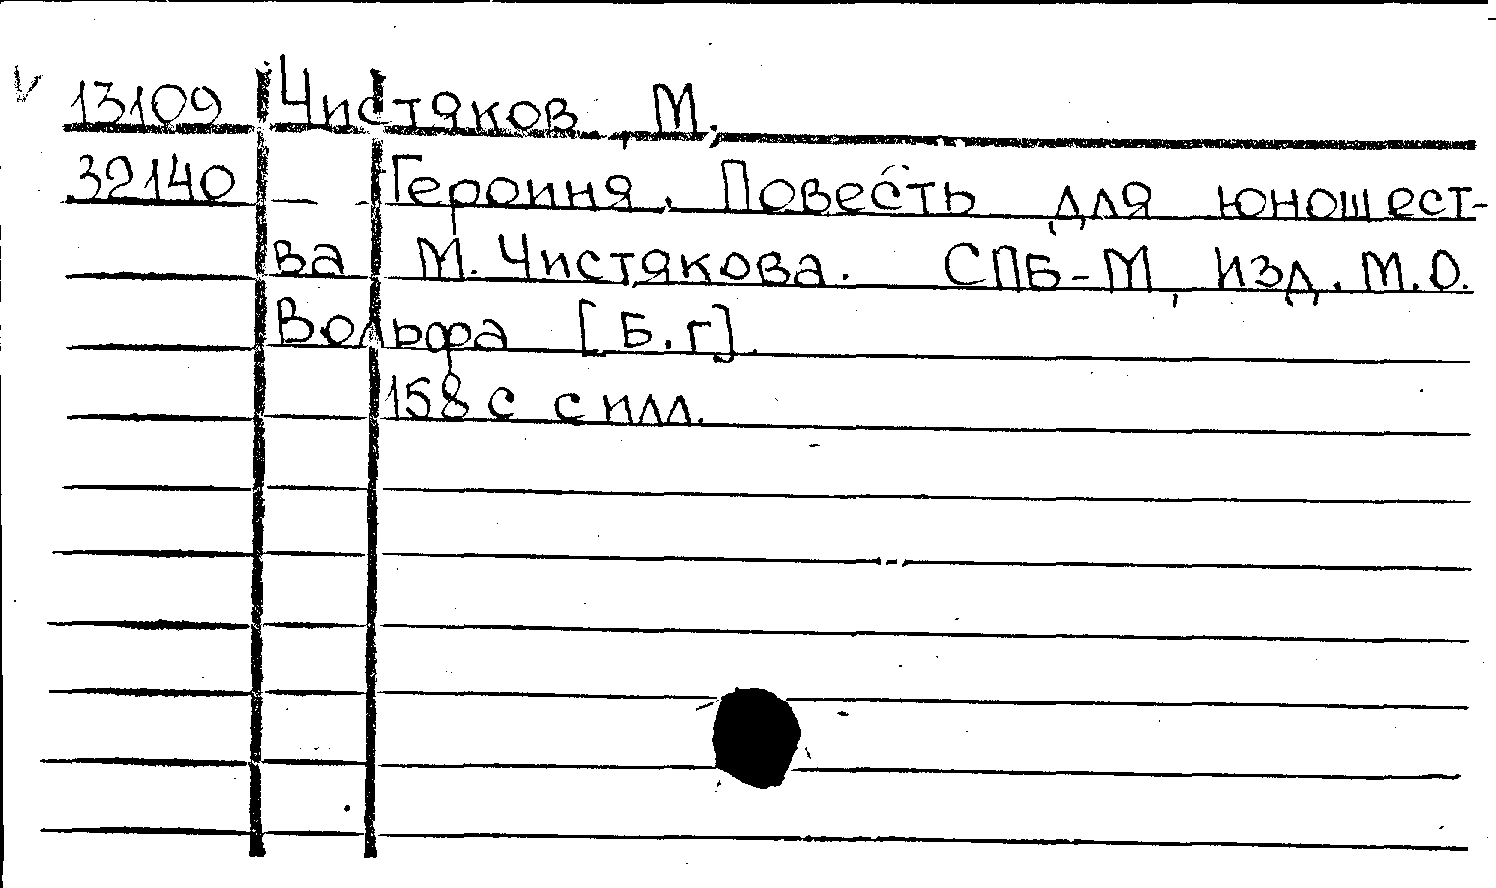 V 13109 Чистяков, М.
32140 Героиня. Повесть для юношест-
ва М. Чистякова. СПБ-М, изд. М.О.
Вольфа [Б.г].
158 с с илл.